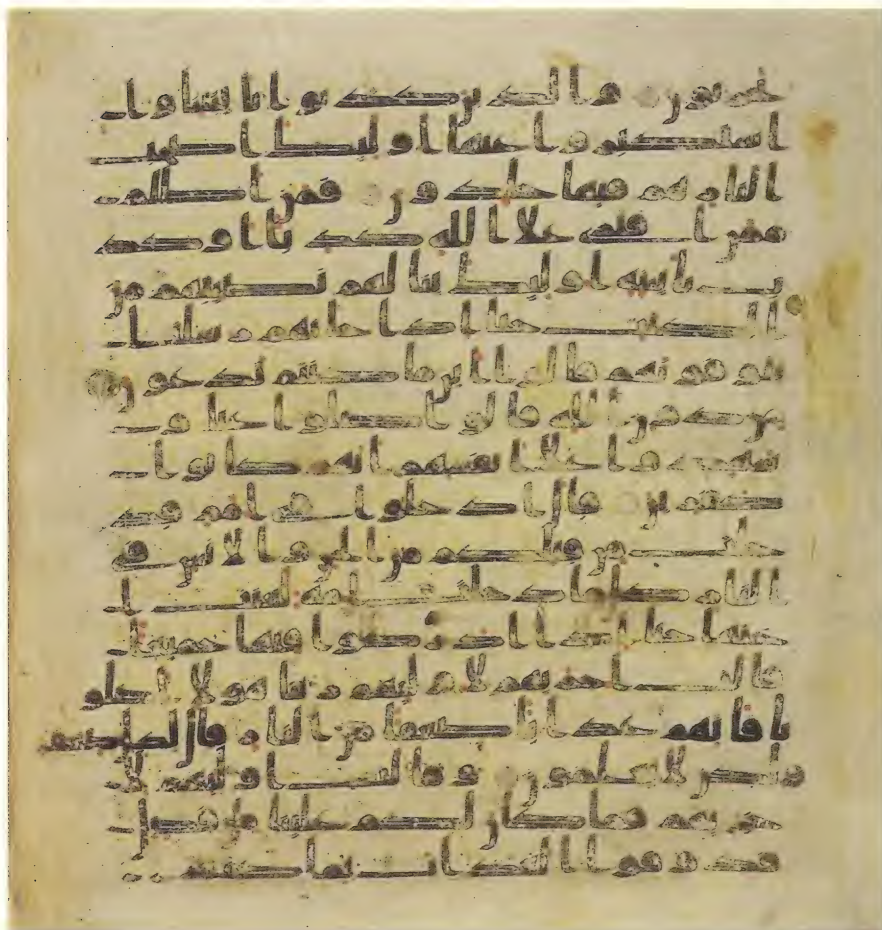 يحزنون والذين كذبوا بايتنا و
استكبروا عنها اوليك اصحب
النار هم فيها خلدون فمن اظلم
ممن افترى علا الله كذبا او كذ
ب بايته اوليك ينالهم نصيبهم من
الكتب حتا اذا جاتهم رسلنا
يتوفونهم قالوا اين ما كنتم تدعون
من دون الله قالوا ضلوا عنا و
شهدوا علا انفسهم انهم كانوا
كفرين قال ادخلوا في امم قد
خلت من قبلكم من الجن والانس في
النار كلما دخلت امة لعنت ا
ختها حتا اذا اداركوا فيها جميعا
قالت اخريهم لاوليهم ربنا هولا اضلو
نا فاتهم عذابا ضعفا من النار قال لكل ضعف
ولكن لا تعلمون وقالت اوليهم لا
خريهم فما كان لكم علينا من فضل
فذوقوا العذاب بما كنتم